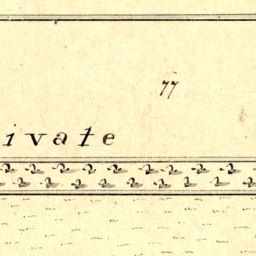 77
ivate